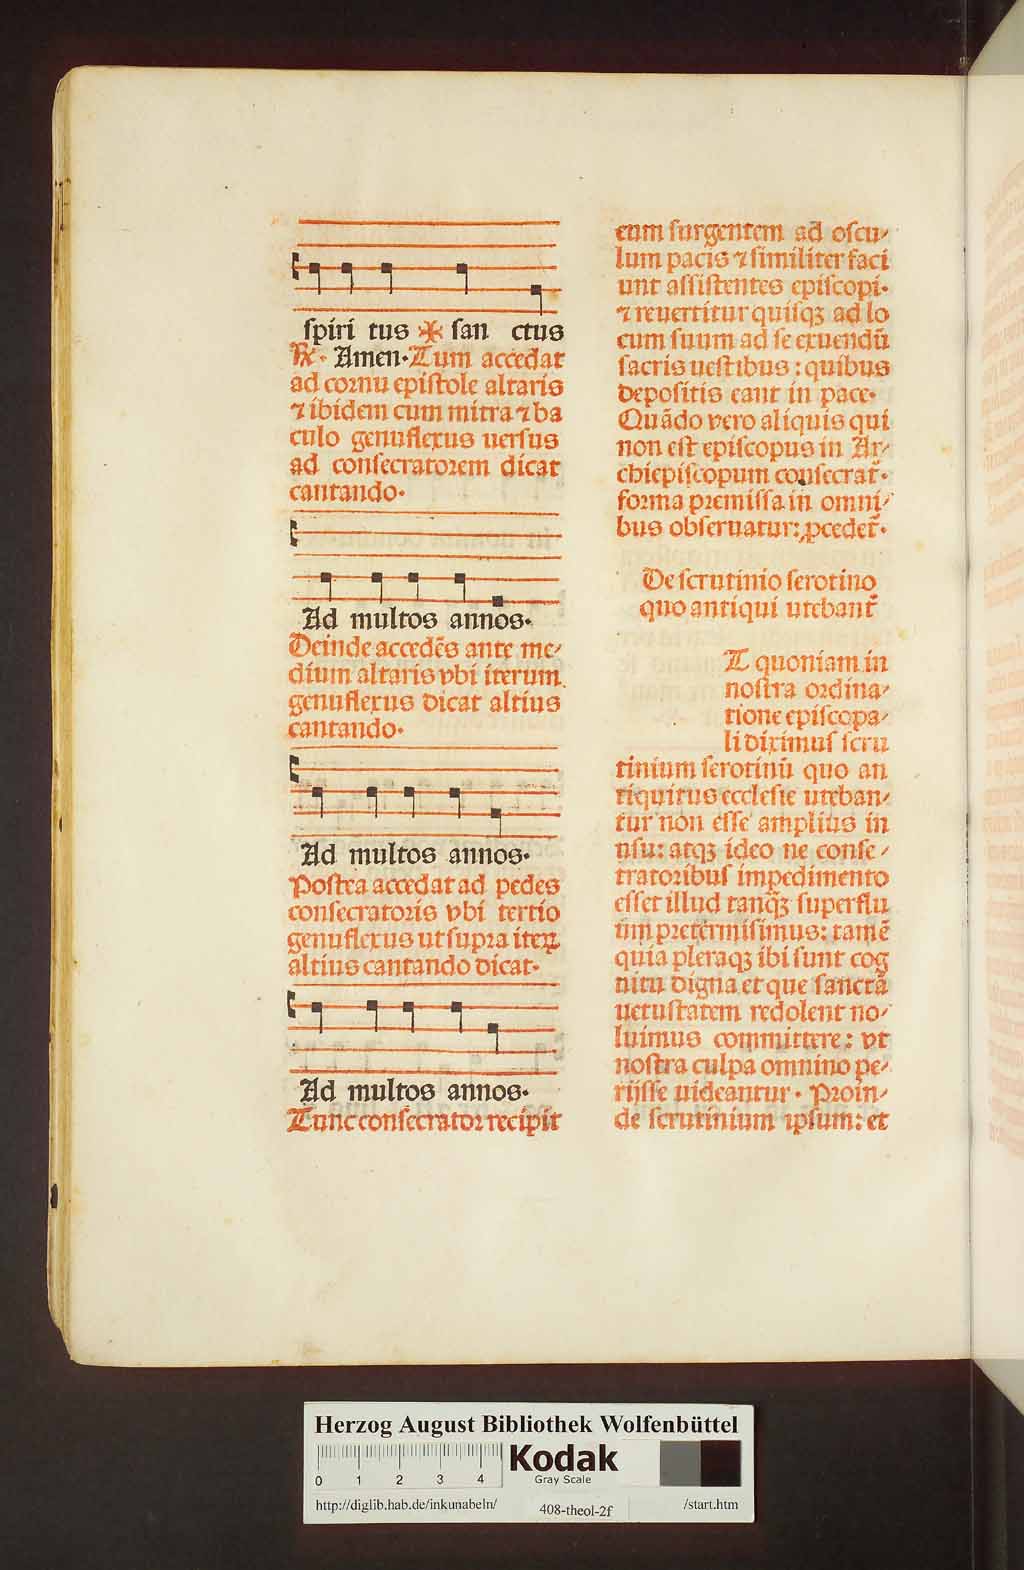 spiri tus ✠ san ctus
℟· Amen· Tum accedat
ad cornu epistole altaris
⁊ ibidem cum mitra ⁊ ba
culo genuflexus uersus
ad consecratorem dicat
cantando·
Ad multos annos·
Deinde accedēs ante me⸗
dium altaris vbi iterum
genuflexus dicat altius
cantando·
Ad multos annos·
Postea accedat ad pedes
consecratoris vbi tertio
genuflexus ut supra iteꝝ
altius cantando dicat·
Ad multos annos·
Tunc consecrator recipit
eum surgentem ad oscu⸗
lum pacis ⁊ similiter faci
unt assistentes episcopi·
⁊ reuertitur quisqꝫ ad lo
cum suum ad se exuendū
sacris uestibus : quibus
depositis eant in pace·
Quādo vero aliquis qui
non est episcopus in Ar⸗
chiepiscopum consecrat᷑·
forma premissa in omni⸗
bus obseruatur: ꝓcedet᷑·
De scrutinio serotino
quo antiqui utebant᷑
T quoniam in
nostra ordina⸗
tione episcopa⸗
li diximus scru
tinium serotinū quo an
tiquitus ecclesie uteban⸗
tur non esse amplius in
usu: atqꝫ ideo ne conse⸗
cratoribus impedimento
esset illud tanqꝫ̄ superflu
um pretermisimus: tamē
quia pleraqꝫ ibi sunt cog
nitu digna et que sanctā
uetustatem redolent no⸗
luimus committere: vt
nostra culpa omnino pe⸗
rijsse uideantur· Proin⸗
de scrutinium ipsum: et
Herzog August Bibliothek Wolfenbüttel
0 1 2 3 4
Kodak
Gray Scale
http://diglib.hab.de/inkunabeln/ 408-theol-2f /start.htm